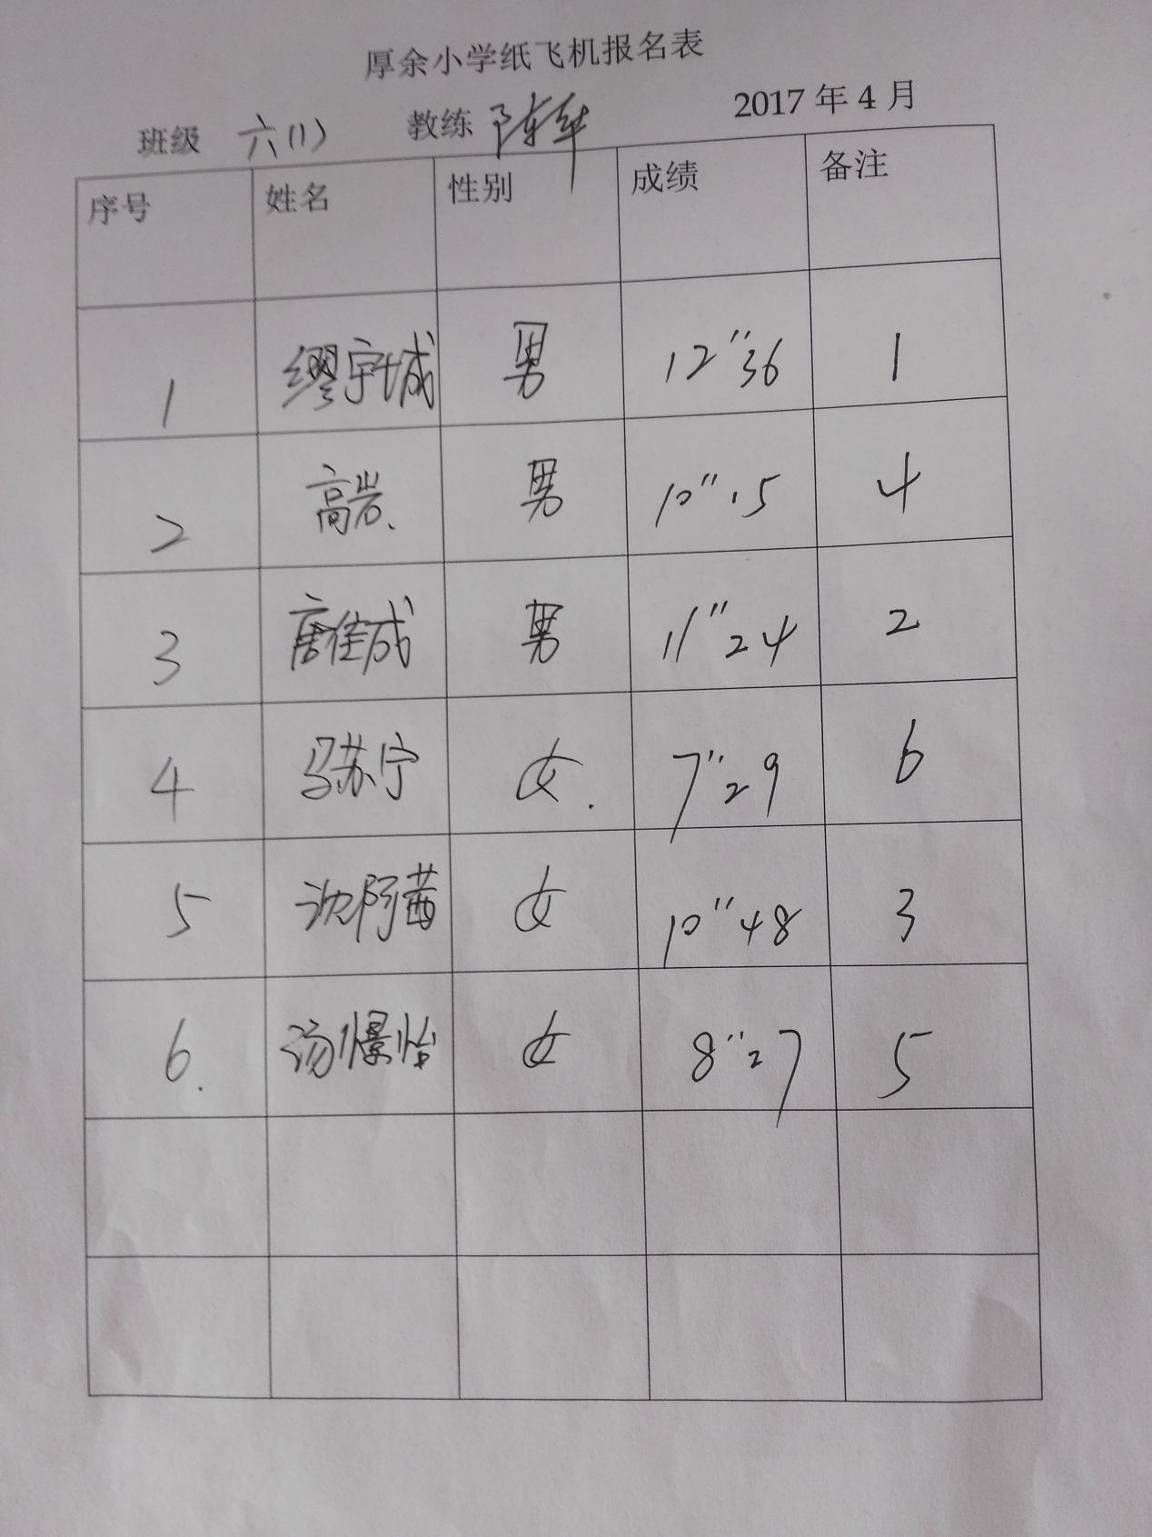 厚余小学纸飞机报名表
班级 六(1) 教练 陈华 2017年4月
序号 姓名 性别 成绩 备注
1 缪宇城 男 12"36 1
2 高岩、 男 10"15 4
3 唐佳成 男 11"24 2
4 马苏宁 女. 7"29 6
5 沈阿茜 女 10"48 3
6. 汤憬怡 女 8"27 5